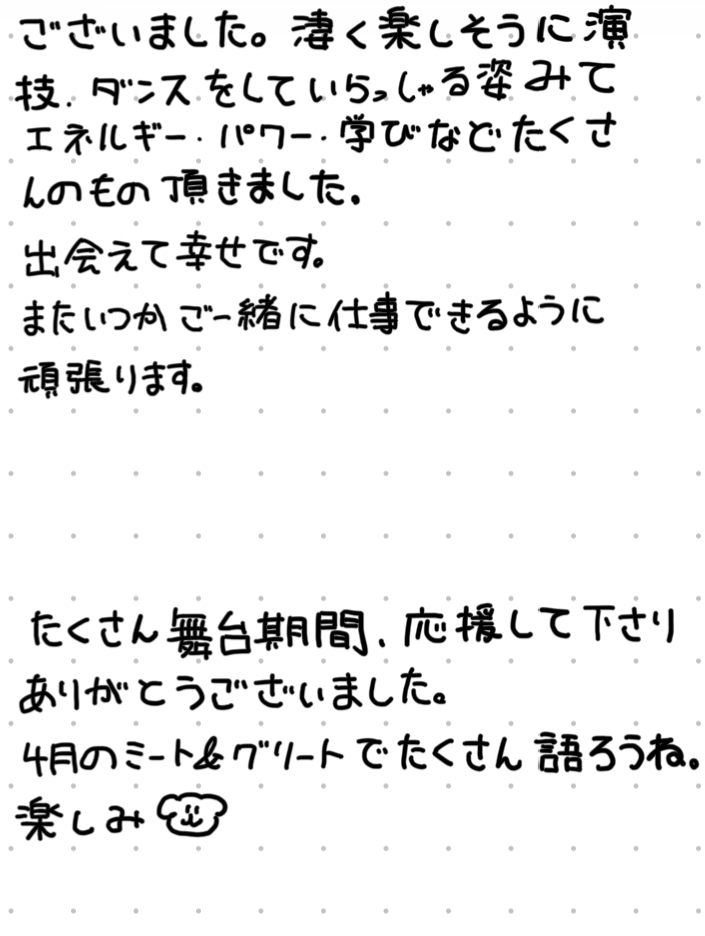 ございました。凄く楽しそうに演
技、ダンスをしていらっしゃる姿みて
エネルギー・パワー・学びなどたくさ
んのもの頂きました。
出会えて幸せです。
またいつかご一緒に仕事できるように
頑張ります。
たくさん舞台期間、応援して下さり
ありがとうございました。
4月のミート&グリートでたくさん語ろうね。
楽しみ